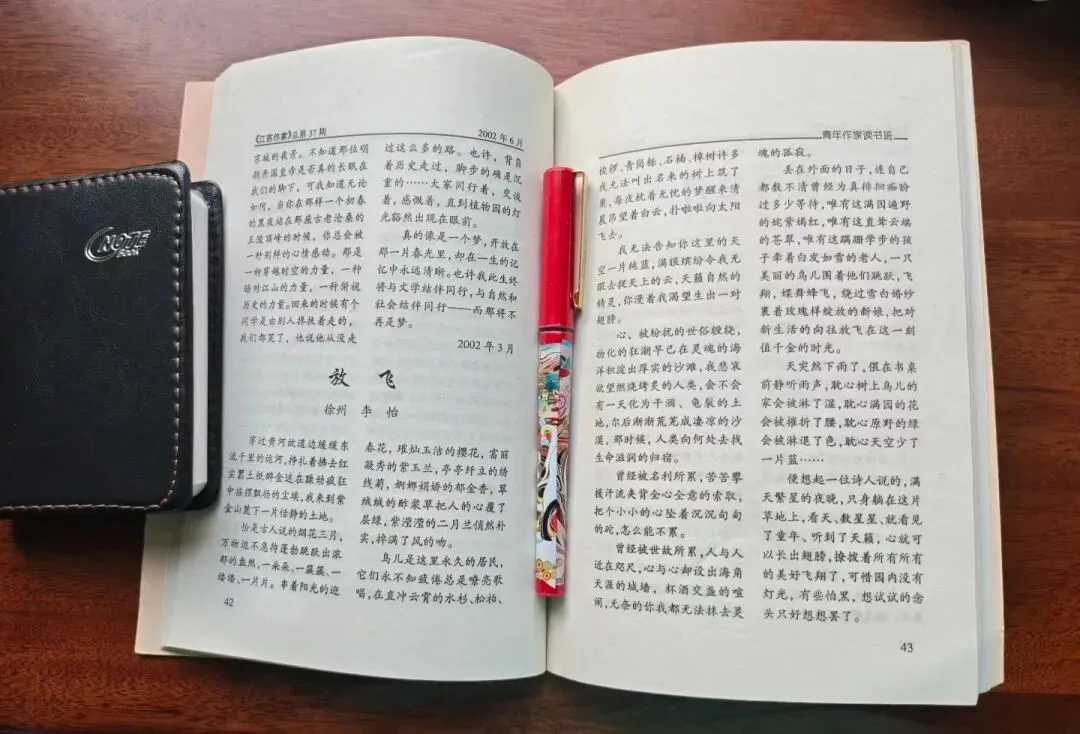 NOTE
BOOK
《江苏作家》总第37期
2002年6月
京城的夜景。不知道那位明
朝开国皇帝是否真的长眠在
我们的脚下，可我知道无论
如何，当你在那样一个初春
的黑夜站在那座古老沧桑的
王陵顶峰的时候，你总会被
一种别样的心情感动。那是
一种穿越时空的力量，一种
话对江山的力量，一种俯视
历史的力量。回来的时候有个
同学是由别人搀扶着走的，
我们都笑了，他说他从没走
过这么多的路。也许，背负
着历史走过，脚步的确是沉
重的……大家同行着，交谈
着，感慨着，直到植物园的灯
光豁然出现在眼前。
真的像是一个梦，开放在
那一片春光里，却在一生的记
忆中永远清晰。也许我此生终
将与文学结伴同行，与自然和
社会结伴同行——而那将不
再是梦。
2002年3月
放 飞
徐州 李 怡
穿过黄河故道边缓缓东
流千年的运河，挣扎着拂去红
尘累土纸醉金迷在躁动疯狂
中摇摆飘扬的尘埃，我来到紫
金山麓下一片恬静的土地。
恰是古人说的烟花三月，
万物迫不急待蓬勃跳跃出浓
郁的盎然，一朵朵、一簇簇、一
缕缕、一片片。串着阳光的迎
春花，璀灿玉洁的樱花，富丽
凝秀的紫玉兰，亭亭纤立的绣
线菊，婀娜娟娇的郁金香，翠
缤缤的酢浆草把人的心覆了
层绿，紫滢滢的二月兰俏然朴
实，掉满了风的吻。
鸟儿是这里永久的居民，
它们永不知疲倦总是嘹亮歌
唱，在直冲云霄的水杉、松柏、
42
青年作家读书班
桉椤、青岗栎、石楠、樟树许多
我无法叫出名来的树上筑了
巢，每夜枕着无忧的梦醒来清
晨昂望着白云，扑啦啦向太阳
飞去。
我无法告知你这里的天
空一片纯蓝，满眼缤纷令我无
暇去捉天上的云，天籁自然的
精灵，你漫着我渴望生出一对
翅膀。
心，被纷扰的世俗缠绕，
物化的狂潮早已在灵魂的海
洋积淀出厚实的沙滩，我悲哀
欲望燃烧烤炙的人类，会不会
有一天化为干涸、龟裂的土
地，尔后渐渐荒芜成凄凉的沙
漠，那时候，人类向何处去找
生命滋润的归宿。
曾经被名利所累，苦苦攀
援汗流夹背全心全意的索取，
把个小小的心坠着沉沉甸甸
的砣，怎么能不累。
曾经被世故所累，人与人
近在咫尺，心与心却设出海角
天涯的城墙，杯酒交盏的喧
闹，无奈的你我都无法抹去灵
魂的孤寂。
丢在外面的日子，连自己
都数不清曾经为真徘徊痴盼
过多少等待，唯有这满园遍野
的姹紫嫣红，唯有这直耸云端
的苍翠，唯有这蹒跚学步的孩
子牵着白发如雪的老人，一只
美丽的鸟儿围着他们跳跃，飞
翔，蝶舞蜂飞，绕过雪白婚纱
裹着玫瑰样绽放的新娘，把对
新生活的向往放飞在这一刻
值千金的时光。
天突然下雨了，偎在书桌
前静听雨声，耽心树上鸟儿的
家会被淋了湿，耽心满园的花
会被摧折了腰，耽心原野的绿
会被淋退了色，耽心天空少了
一片蓝……
便想起一位诗人说的，满
天繁星的夜晚，只身躺在这片
草地上，看天、数星星、就看见
了童年、听到了天籁，心就可
以长出翅膀，撩拨着所有所有
的美好飞翔了，可惜园内没有
灯光，有些怕黑，想试试的念
头只好想想罢了。
43